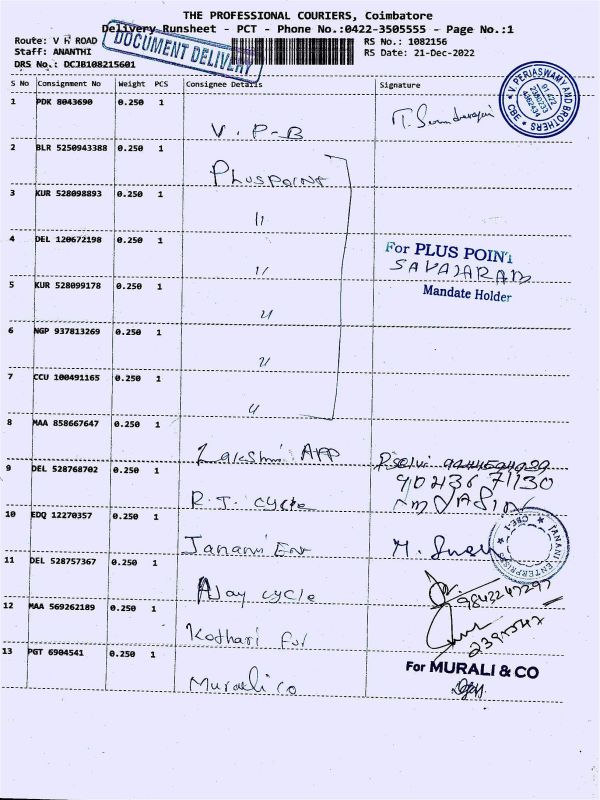 THE PROFESSIONAL COURIERS, Coimbatore
Delivery Runsheet - PCT - Phone No.:0422-3505555 - Page No.:1
Route: V H ROAD
Staff: ANANTHI
DRS No.: DCJB108215601
DOCUMENT DELIVERY
RS No.: 1082156
RS Date: 21-Dec-2022
S No Consignment No Weight PCS Consignee Details Signature
1 PDK 8043690 0.250 1 V.P-B
V. PERIASWAMY AND BROTHERS CBE
2 BLR 5250943388 0.250 1 Pluspoint
3 KUR 528098893 0.250 1 11
4 DEL 120672198 0.250 1 11
For PLUS POINT
Mandate Holder
5 KUR 528099178 0.250 1 "
6 NGP 937813269 0.250 1 "
7 CCU 100491165 0.250 1 "
8 MAA 858667647 0.250 1 Lakshmi APP P.selvi
9 DEL 528768702 0.250 1 R.J. cycle
10 EDQ 12270357 0.250 1 Janani Ent
JANANI ENTERPRISES CBE-1
11 DEL 528757367 0.250 1 Ajay cycle 9843247297
12 MAA 569262189 0.250 1 Kothari
13 PGT 6904541 0.250 1 Murali co
For MURALI & CO